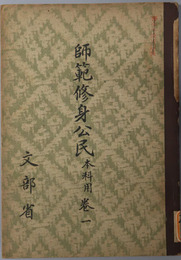 師範修身公民 本科用 巻一
文部省